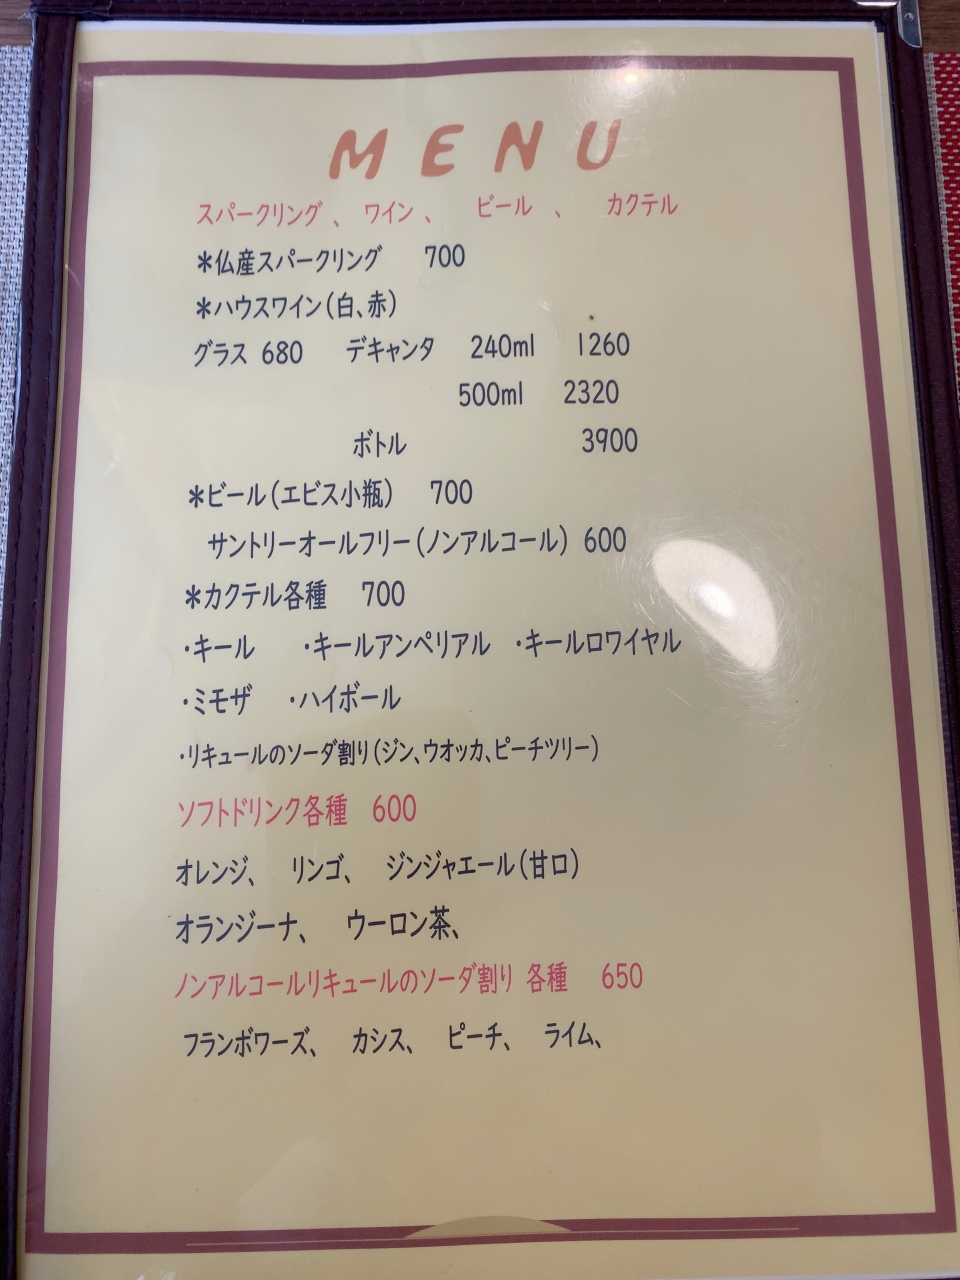 MENU
スパークリング、 ワイン、 ビール 、 カクテル
＊仏産スパークリング 700
＊ハウスワイン(白、赤)
グラス 680 デキャンタ 240ml 1260
500ml 2320
ボトル 3900
＊ビール(エビス小瓶) 700
サントリーオールフリー(ノンアルコール) 600
＊カクテル各種 700
・キール ・キールアンペリアル ・キールロワイヤル
・ミモザ ・ハイボール
・リキュールのソーダ割り(ジン、ウオッカ、ピーチツリー)
ソフトドリンク各種 600
オレンジ、 リンゴ、 ジンジャエール(甘口)
オランジーナ、 ウーロン茶、
ノンアルコールリキュールのソーダ割り 各種 650
フランボワーズ、 カシス、 ピーチ、 ライム、